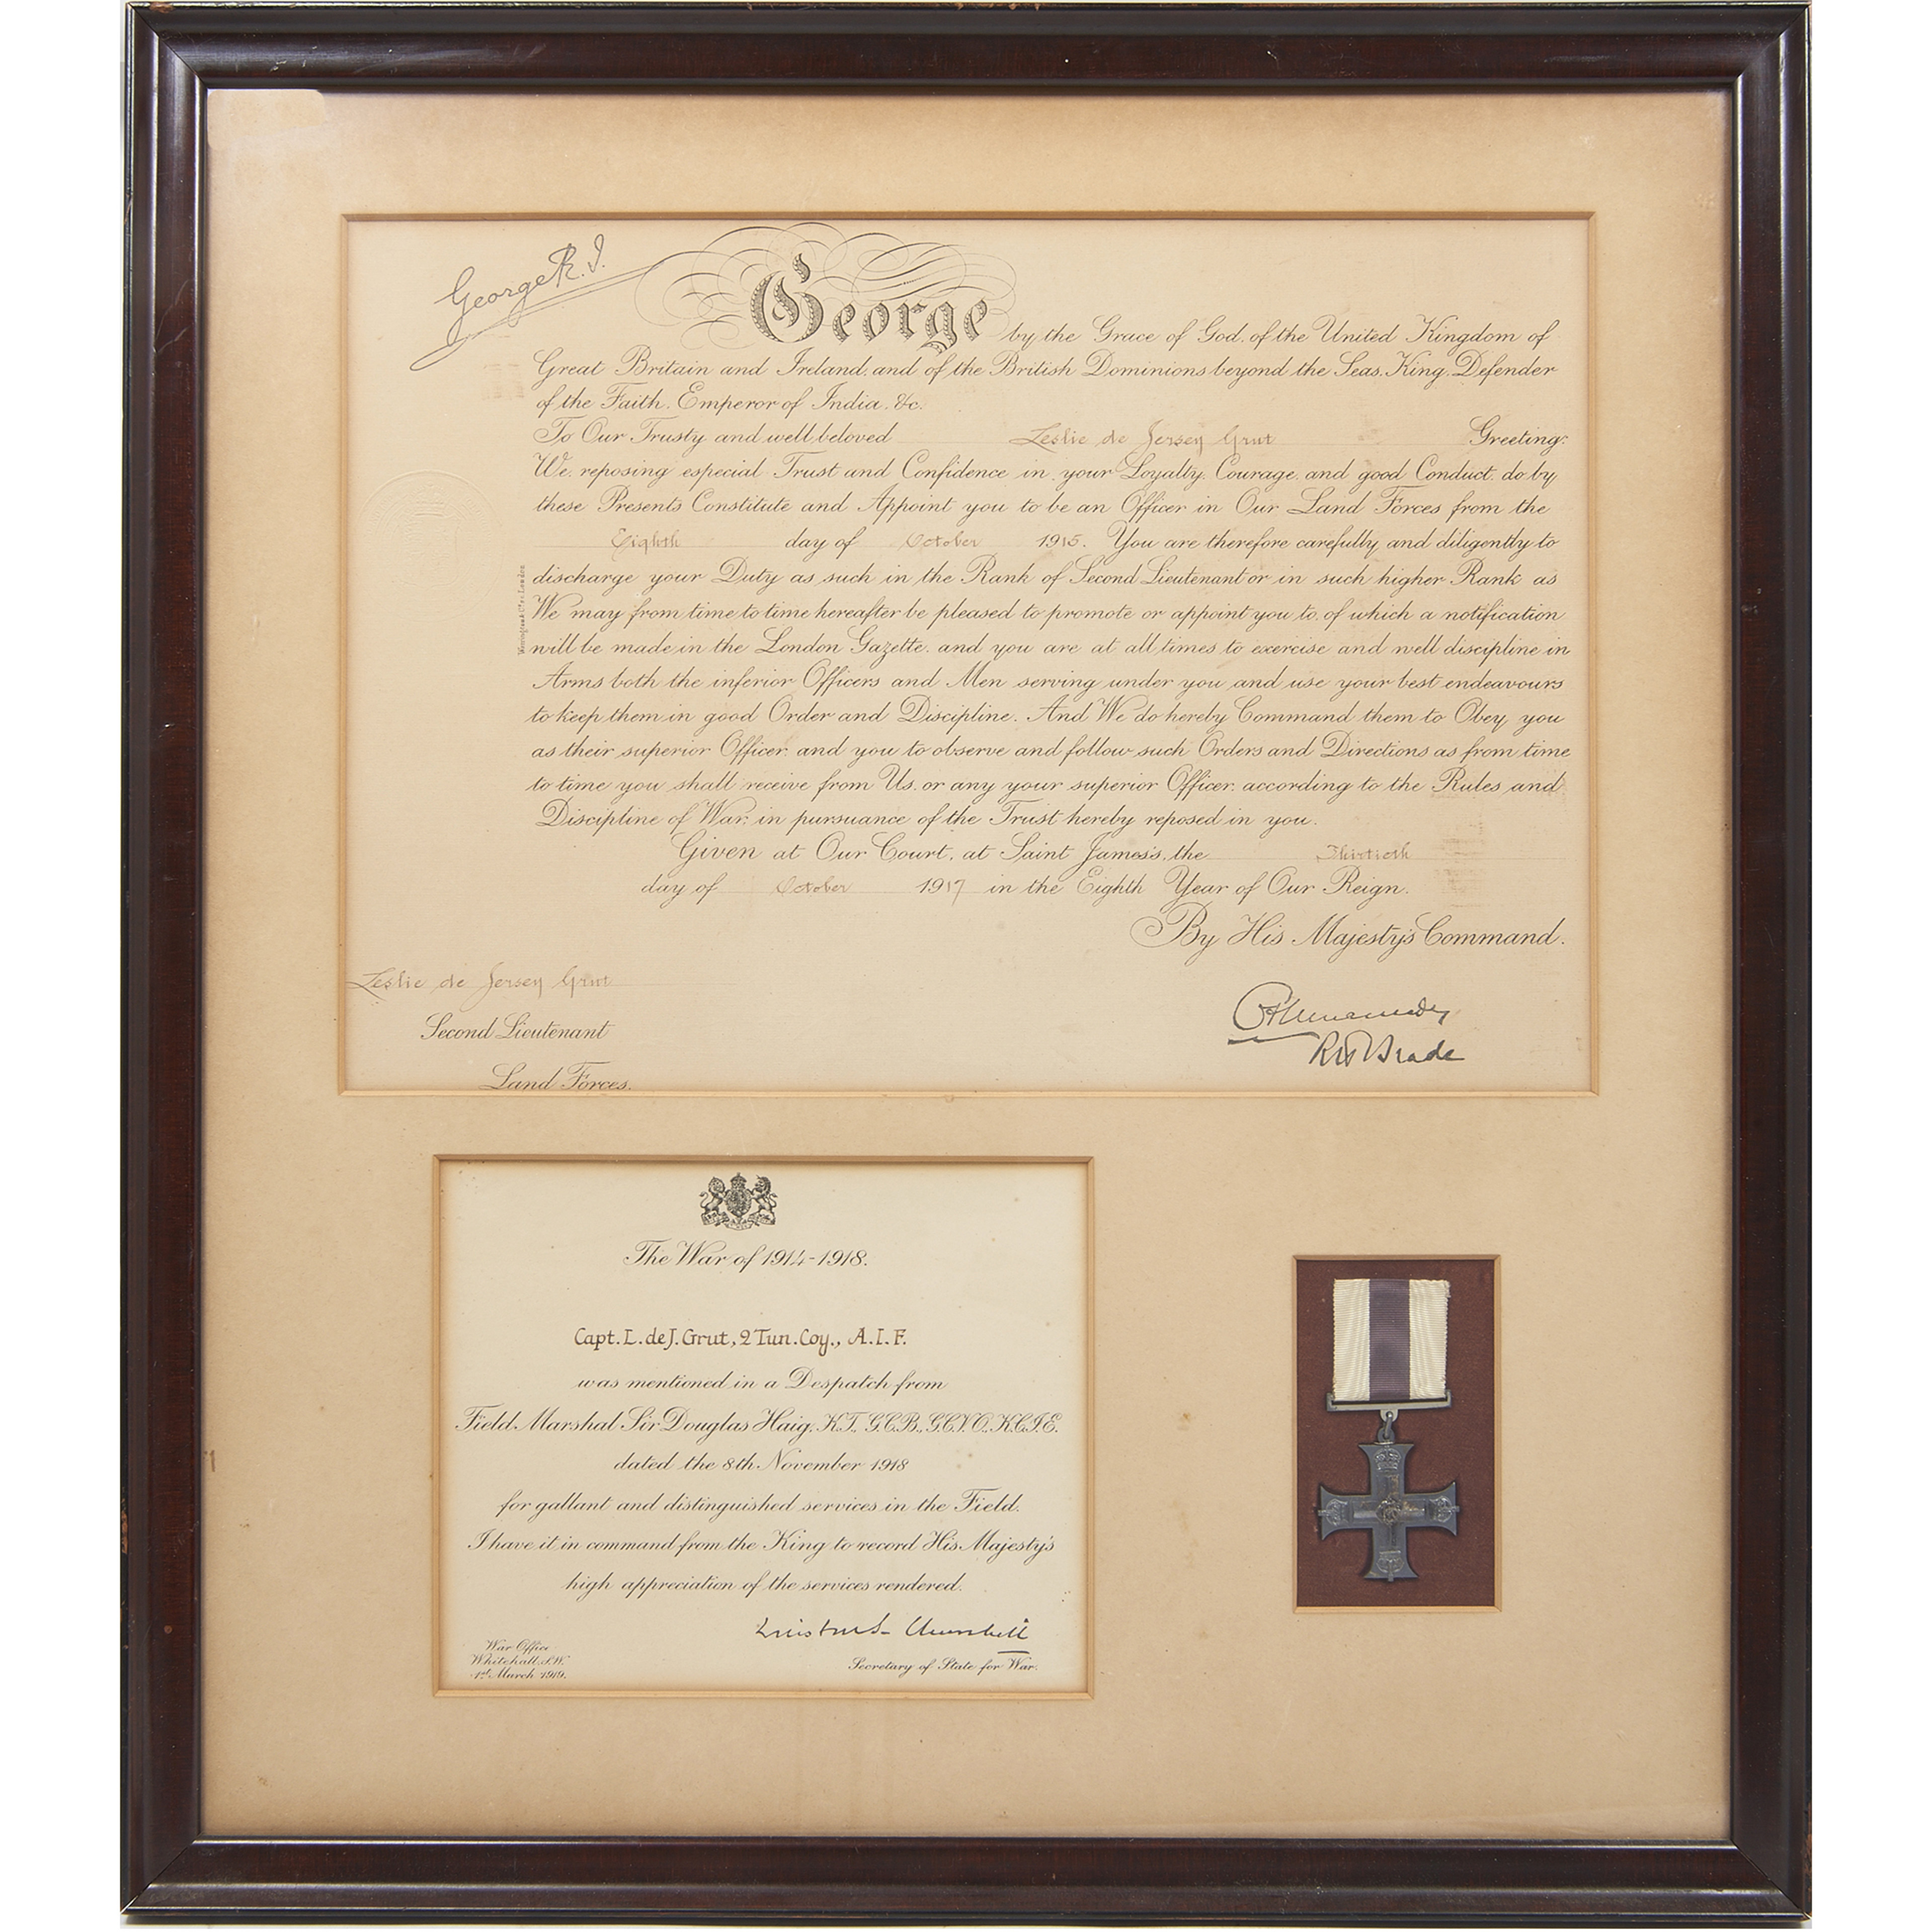 George R.I.
George by the Grace of God, of the United Kingdom of
Great Britain and Ireland, and of the British Dominions beyond the Seas, King, Defender
of the Faith, Emperor of India, &c.
To Our Trusty and well beloved Leslie de Jersey Grut Greeting:
We, reposing especial Trust and Confidence in your Loyalty, Courage, and good Conduct, do by
these Presents Constitute and Appoint you to be an Officer in Our Land Forces from the
Eighth day of October 1915. You are therefore carefully and diligently to
discharge your Duty as such in the Rank of Second Lieutenant or in such higher Rank as
We may from time to time hereafter be pleased to promote or appoint you to, of which a notification
will be made in the London Gazette, and you are at all times to exercise and well discipline in
Arms both the inferior Officers and Men serving under you and use your best endeavours
to keep them in good Order and Discipline. And We do hereby Command them to Obey you
as their superior Officer, and you to observe and follow such Orders and Directions as from time
to time you shall receive from Us, or any your superior Officer, according to the Rules and
Discipline of War, in pursuance of the Trust hereby reposed in you.
Given at Our Court, at Saint James's, the Thirtieth
day of October 1917 in the Eighth Year of Our Reign.
By His Majesty's Command.
Leslie de Jersey Grut
Second Lieutenant
Land Forces.
RH Brade
The War of 1914-1918.
Capt. L. de J. Grut, 2 Tun. Coy., A.I.F.
was mentioned in a Despatch from
Field Marshal Sir Douglas Haig, K.T., G.C.B., G.C.V.O., K.C.I.E.
dated the 8th November 1918
for gallant and distinguished services in the Field.
I have it in command from the King to record His Majesty's
high appreciation of the services rendered.
Winston S. Churchill
Secretary of State for War.
War Office
Whitehall, S.W.
1st March 1919.